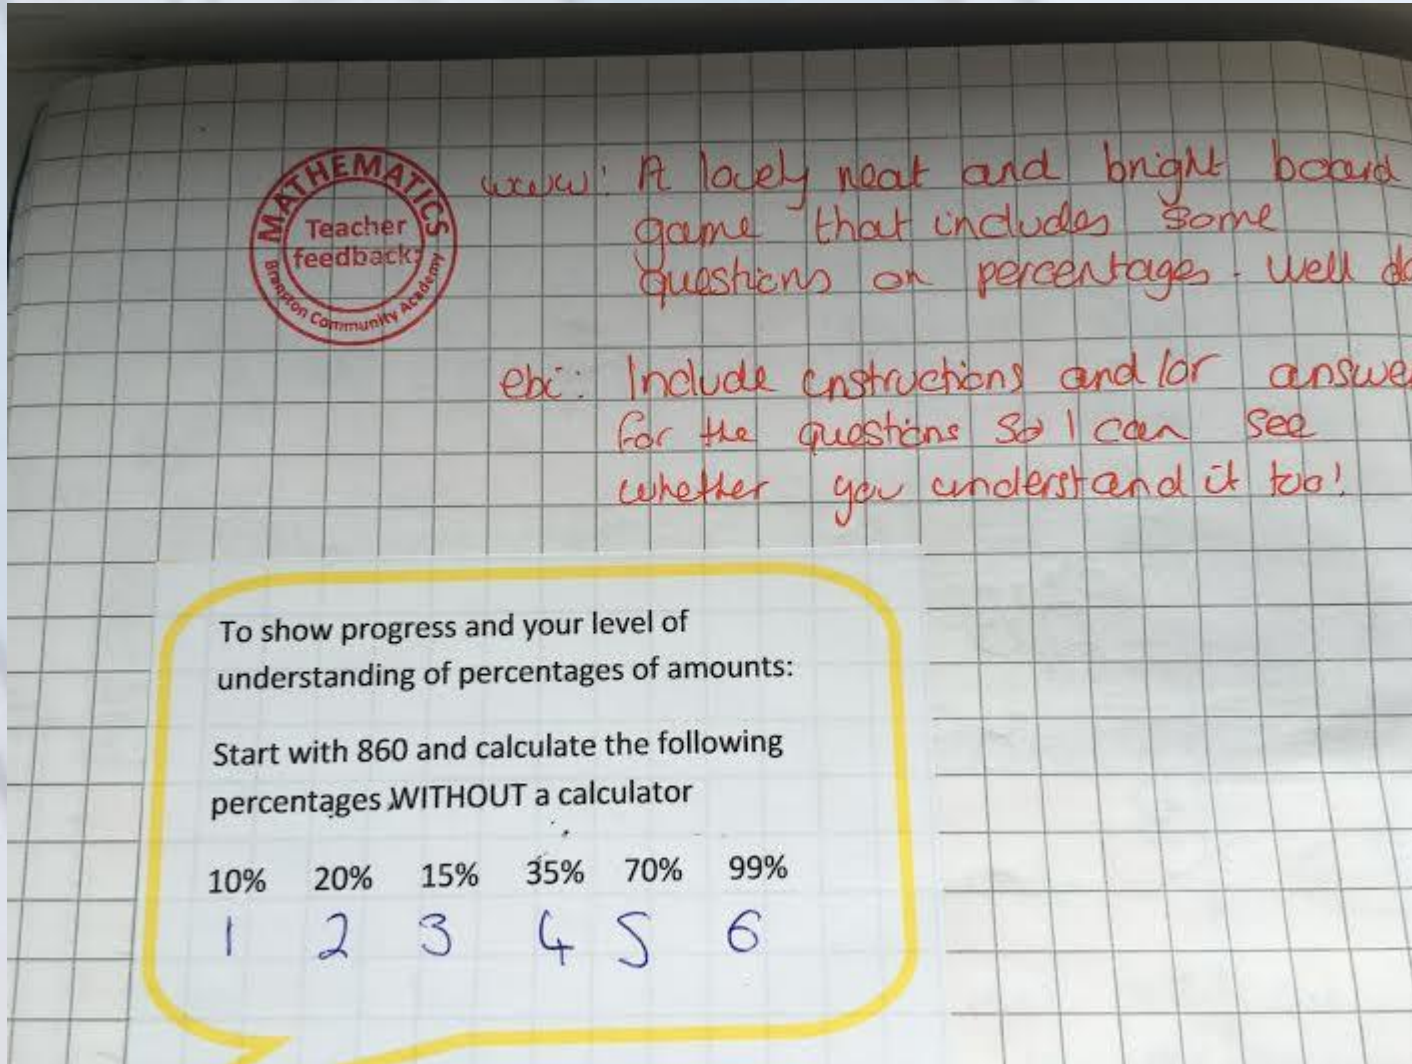 MATHEMATICS
Teacher
feedback:
Branston Community Academy
www: A lovely neat and bright board
game that includes some
questions on percentages. Well do
ebi: Include instructions and/or answe
for the questions so I can see
whether you understand it too!
To show progress and your level of
understanding of percentages of amounts:
Start with 860 and calculate the following
percentages WITHOUT a calculator
10% 20% 15% 35% 70% 99%
1 2 3 4 5 6